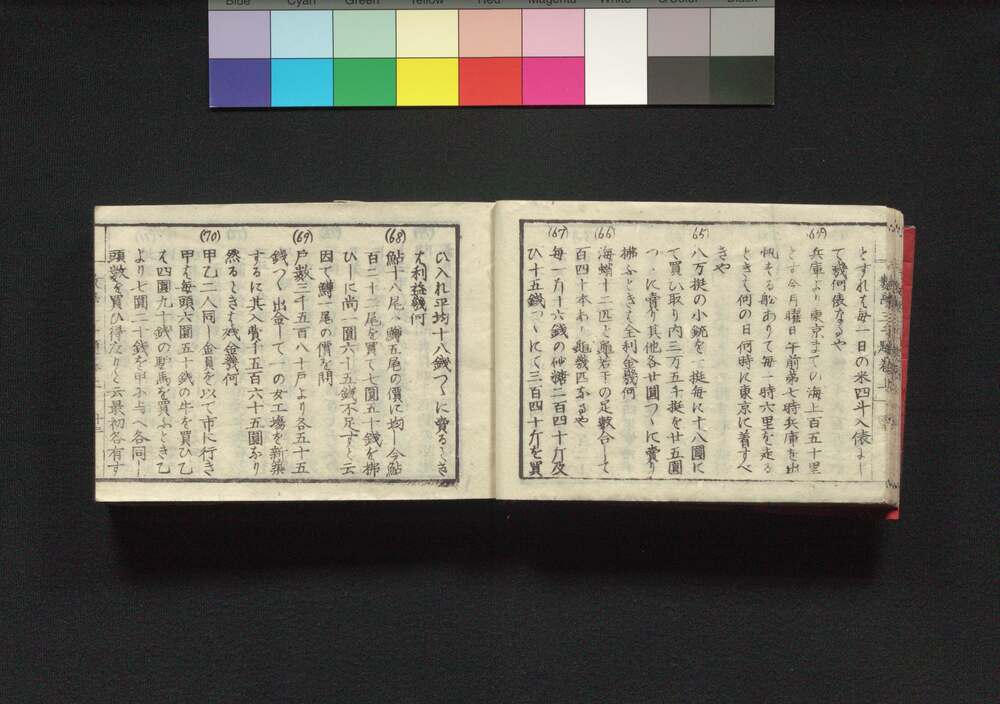 Blue Cyan Green Yellow Red Magenta White 3/Color Black
とすれは毎一日の米四斗入俵にし
て幾何俵なるや
(64)
兵庫より東京までの海上百五十里
とす今月曜日午前第七時兵庫を出
帆する船ありて毎一時六里を走る
ときは何の日何時に東京に着すべ
きや
(65)
八万挺の小銃を一挺毎に十八圓に
て買ひ取り内三万五千挺を廿五圓
つゝに賣り其他各廿圓つゝに賣り
拂ふときは全利金幾何
(66)
海蛸十二匹と亀若干の足數合して
百四十本あり亀幾匹なるや
(67)
毎一斤十六錢の砂糖二百四十斤及
ひ十五錢つゝにて三百四十斤を買
ひ入れ平均十八錢つゝに賣るとき
は利益幾何
(68)
鮎十八尾ハ鱒五尾の價に均し今鮎
百二十二尾を買て七圓五十錢を拂
ひしに尚一圓六十五錢不足すと云
因て鱒一尾の價を問
(69)
戸數三千五百八十戸より各五十五
錢つゝ出金して一の女工塲を新築
するに其入費千五百六十五圓なり
然るときは残金幾何
(70)
甲乙二人同し金員を以て市に行き
甲は毎頭六圓五十錢の牛を買ひ乙
は四圓九十錢の驢馬を買ふとき乙
より七圓二十錢を甲に与へ各同し
頭數を買ひ得たりと云最初各有す